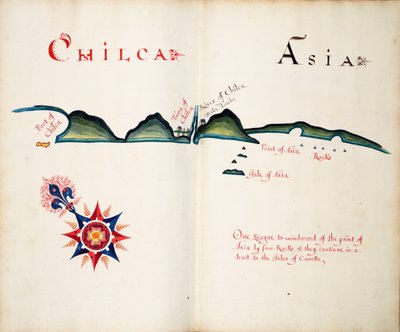 CHILCA
ASIA
Port of
Chilca
Town of
Chilca
River of Chilca
Point of Asia
Rocks
Isle of Asia
One League to windward of the point of
Asia ly some Rocks & they continue in a
knot to the Isles of Canette